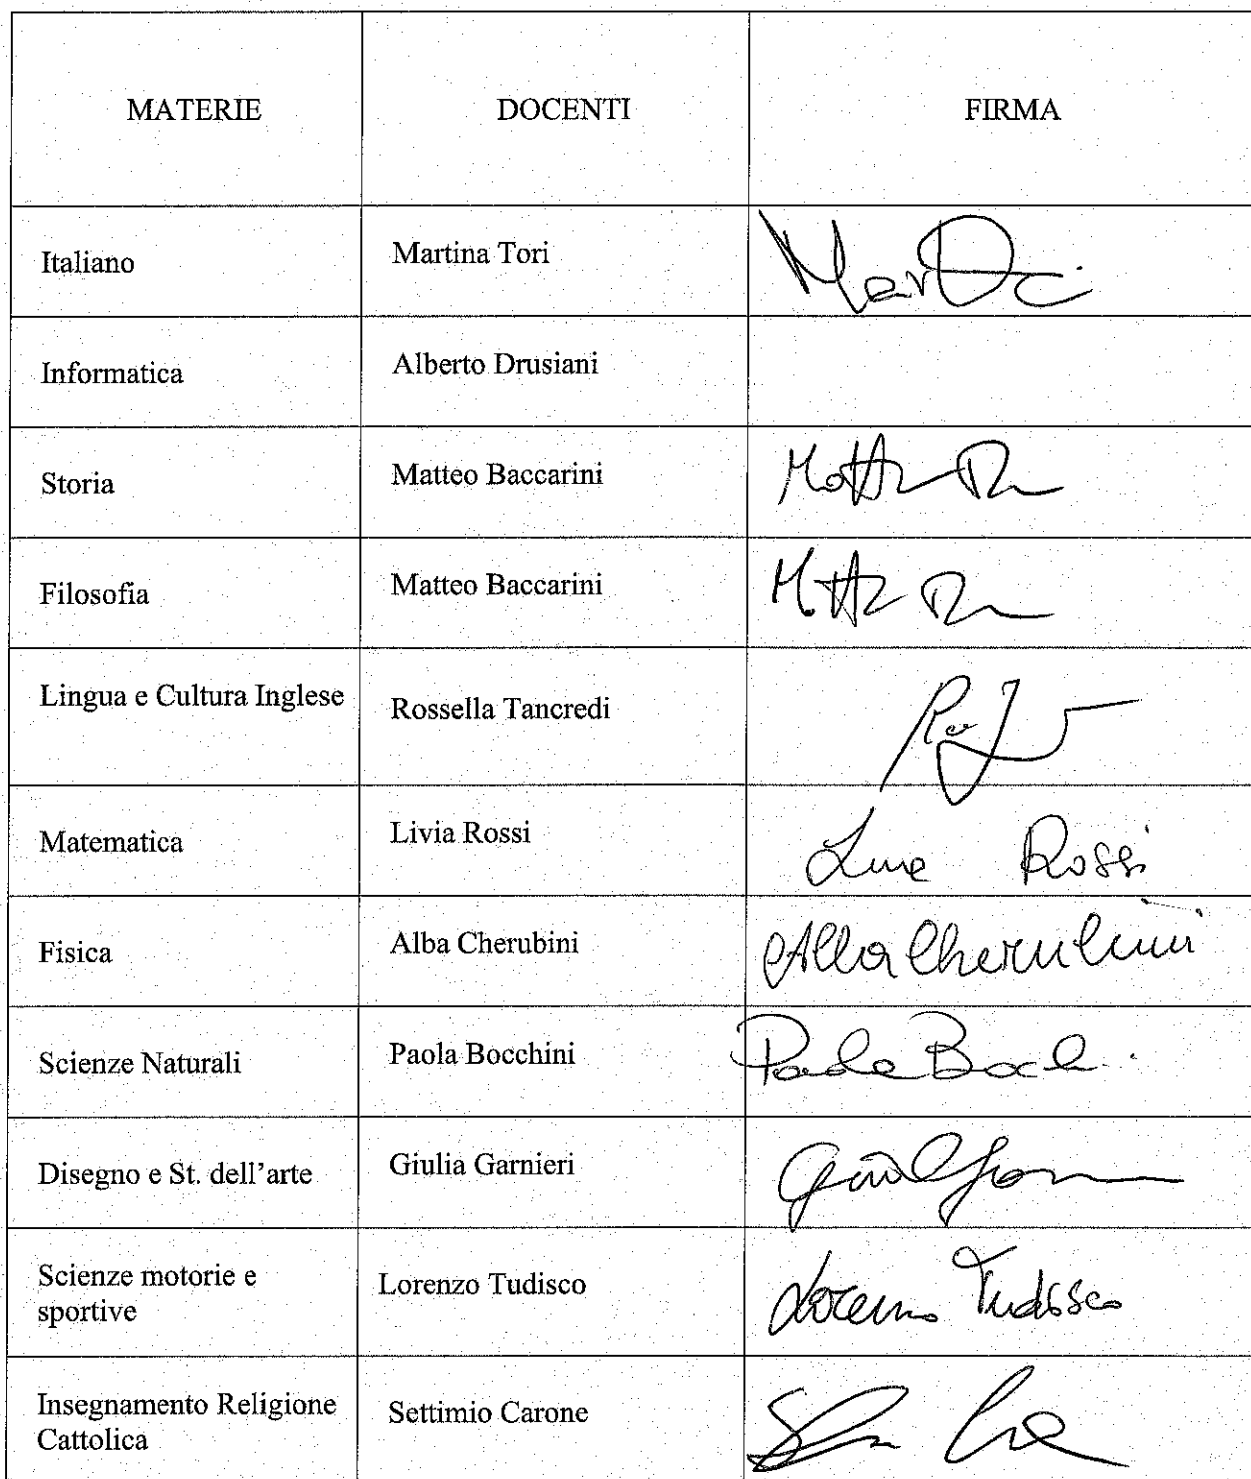 MATERIE DOCENTI FIRMA
Italiano Martina Tori
Informatica Alberto Drusiani
Storia Matteo Baccarini
Filosofia Matteo Baccarini
Lingua e Cultura Inglese Rossella Tancredi
Matematica Livia Rossi Rossi
Fisica Alba Cherubini Alba Cherubini
Scienze Naturali Paola Bocchini Paola
Disegno e St. dell'arte Giulia Garnieri
Scienze motorie e
sportive Lorenzo Tudisco Lorenzo Tudisco
Insegnamento Religione
Cattolica Settimio Carone